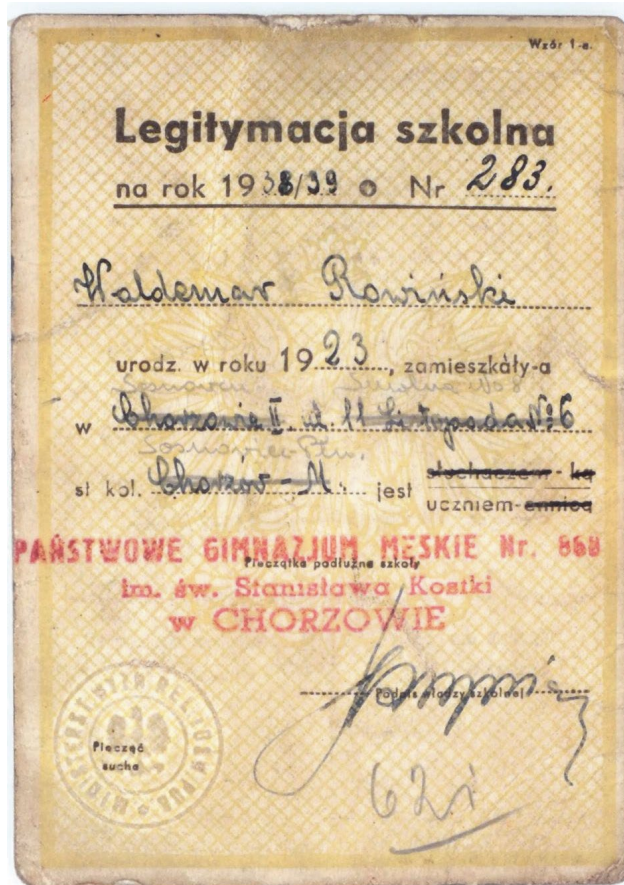 Wzór 1-a.
Legitymacja szkolna
na rok 1938/39 Nr 283.
Waldemar Rowiński
urodz. w roku 1923, zamieszkały-a
Sosnowcu Szkolna No 8
w Chorzowie II. ul. 11 Listopada № 6
Sosnowiec-Płn.
st kol. Chorzów-M. jest słuchaczem-ką
uczniem-ennicą
PAŃSTWOWE GIMNAZJUM MĘSKIE Nr. 868
Pieczątka podłużna szkoły
im. św. Stanisława Kostki
w CHORZOWIE
Podpis władzy szkolnej
Pieczęć
sucha